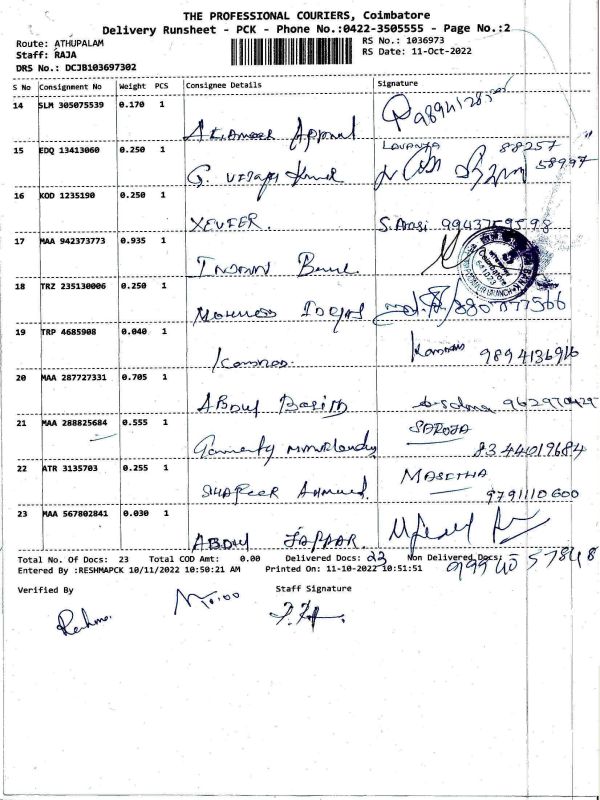 THE PROFESSIONAL COURIERS, Coimbatore
Delivery Runsheet - PCK - Phone No.:0422-3505555 - Page No.:2
Route: ATHUPALAM
Staff: RAJA
DRS No.: DCJB103697302
RS No.: 1036973
RS Date: 11-Oct-2022
S No Consignment No Weight PCS Consignee Details Signature
14 SLM 305075539 0.170 1
15 EDQ 13413060 0.250 1
LAVANYA 88257
58997
16 KOD 1235190 0.250 1
XEVIER. S. Arasi 9943759598
17 MAA 942373773 0.935 1
18 TRZ 235130006 0.250 1
19 TRP 4685908 0.040 1
9894136916
20 MAA 287727331 0.705 1
ABDUL BASITH
21 MAA 288825684 0.555 1
SAROJA
8344019684
22 ATR 3135703 0.255 1
SHAFEER Ahmed. MASETHA
9791110600
23 MAA 567802841 0.030 1
ABDUL JAPPAR.
Total No. Of Docs: 23 Total COD Amt: 0.00 Delivered Docs: 23 Non Delivered Docs:
9994057848
Entered By :RESHMAPCK 10/11/2022 10:50:21 AM Printed On: 11-10-2022 10:51:51
Verified By Staff Signature
Reshma.